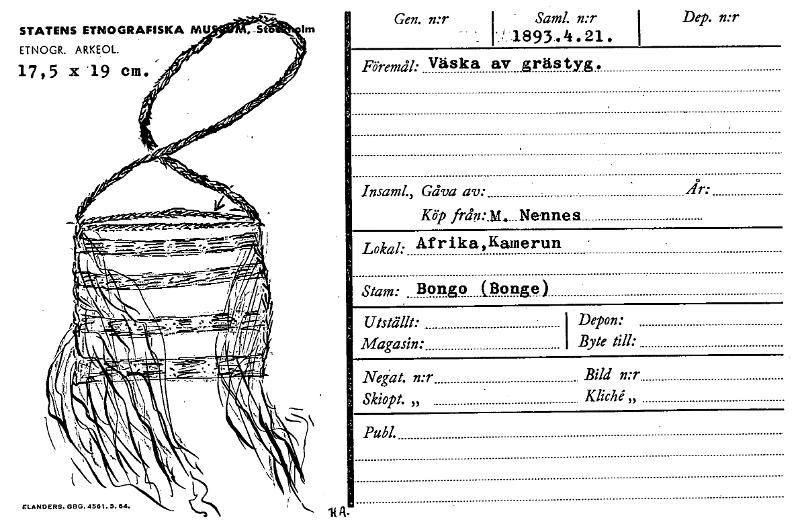 STATENS ETNOGRAFISKA MUSEUM, Stockholm
ETNOGR. ARKEOL.
17,5 x 19 cm.
ELANDERS. GBG. 4561. 3. 64.
HA.
Gen. n:r Saml. n:r Dep. n:r
1893.4.21.
Föremål: Väska av grästyg.
Insaml., Gåva av: År:
Köp från: M. Nennes
Lokal: Afrika,Kamerun
Stam: Bongo (Bonge)
Utställt: Depon:
Magasin: Byte till:
Negat. n:r Bild n:r
Skiopt. „ Kliché „
Publ.